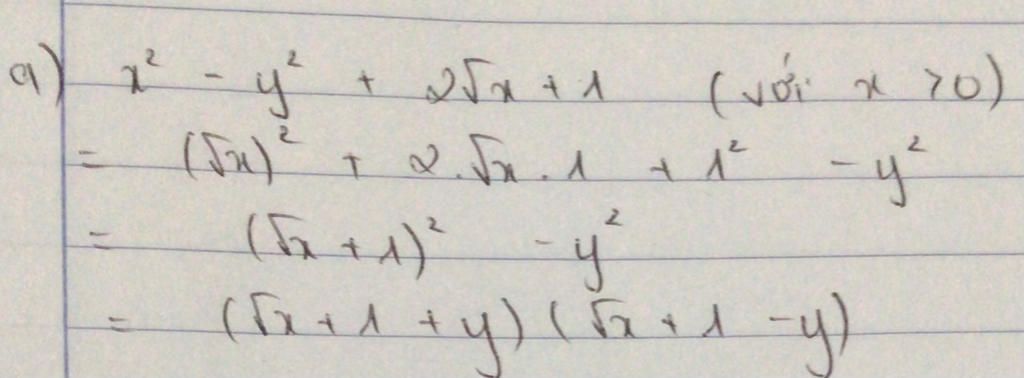 a) x² - y² + 2√x + 1 (với x > 0)
= (√x)² + 2.√x.1 + 1² - y²
= (√x + 1)² - y²
= (√x + 1 + y)(√x + 1 - y)